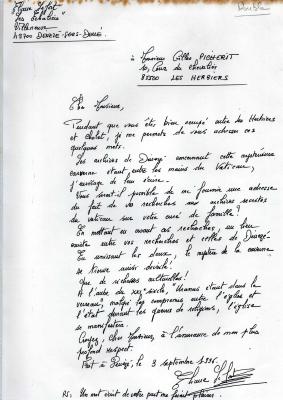 Double
Villeneuve
49700 DENEZÉ-SOUS-DOUÉ
à Monsieur Gilles PICHERIT
10, Cour du Chevalier
85500 LES HERBIERS
Cher Monsieur,
Pendant que vous êtes bien occupé entre les Herbiers
et Cholet, je me permets de vous adresser ces
quelques mots.
Les archives de Denezé annoncent cette mystérieuse
couronne étant entre les mains du Vatican,
l'ouvrage de leur
Vous serait-il possible de me fournir une adresse
du fait de vos recherches aux archives secrètes
du vatican sur votre curé de famille !
En mettant en avant ces recherches, un lien
existe entre vos recherches et celles de Denezé
En unissant les deux, le mystère de la couronne
se trouve aussi dévoilé !
Que de richesses culturelles !
A l'aube du XXIe siècle, "
", malgré les compromis entre l'église et
l'état durant les guerres de religions, l'église
se manifestera.
Croyez, cher Monsieur, à l'assurance de mon plus
profond respect.
Fait à Denezé, 3 septembre 1996.
PS : Un mot écrit de votre part me ferait plaisir.